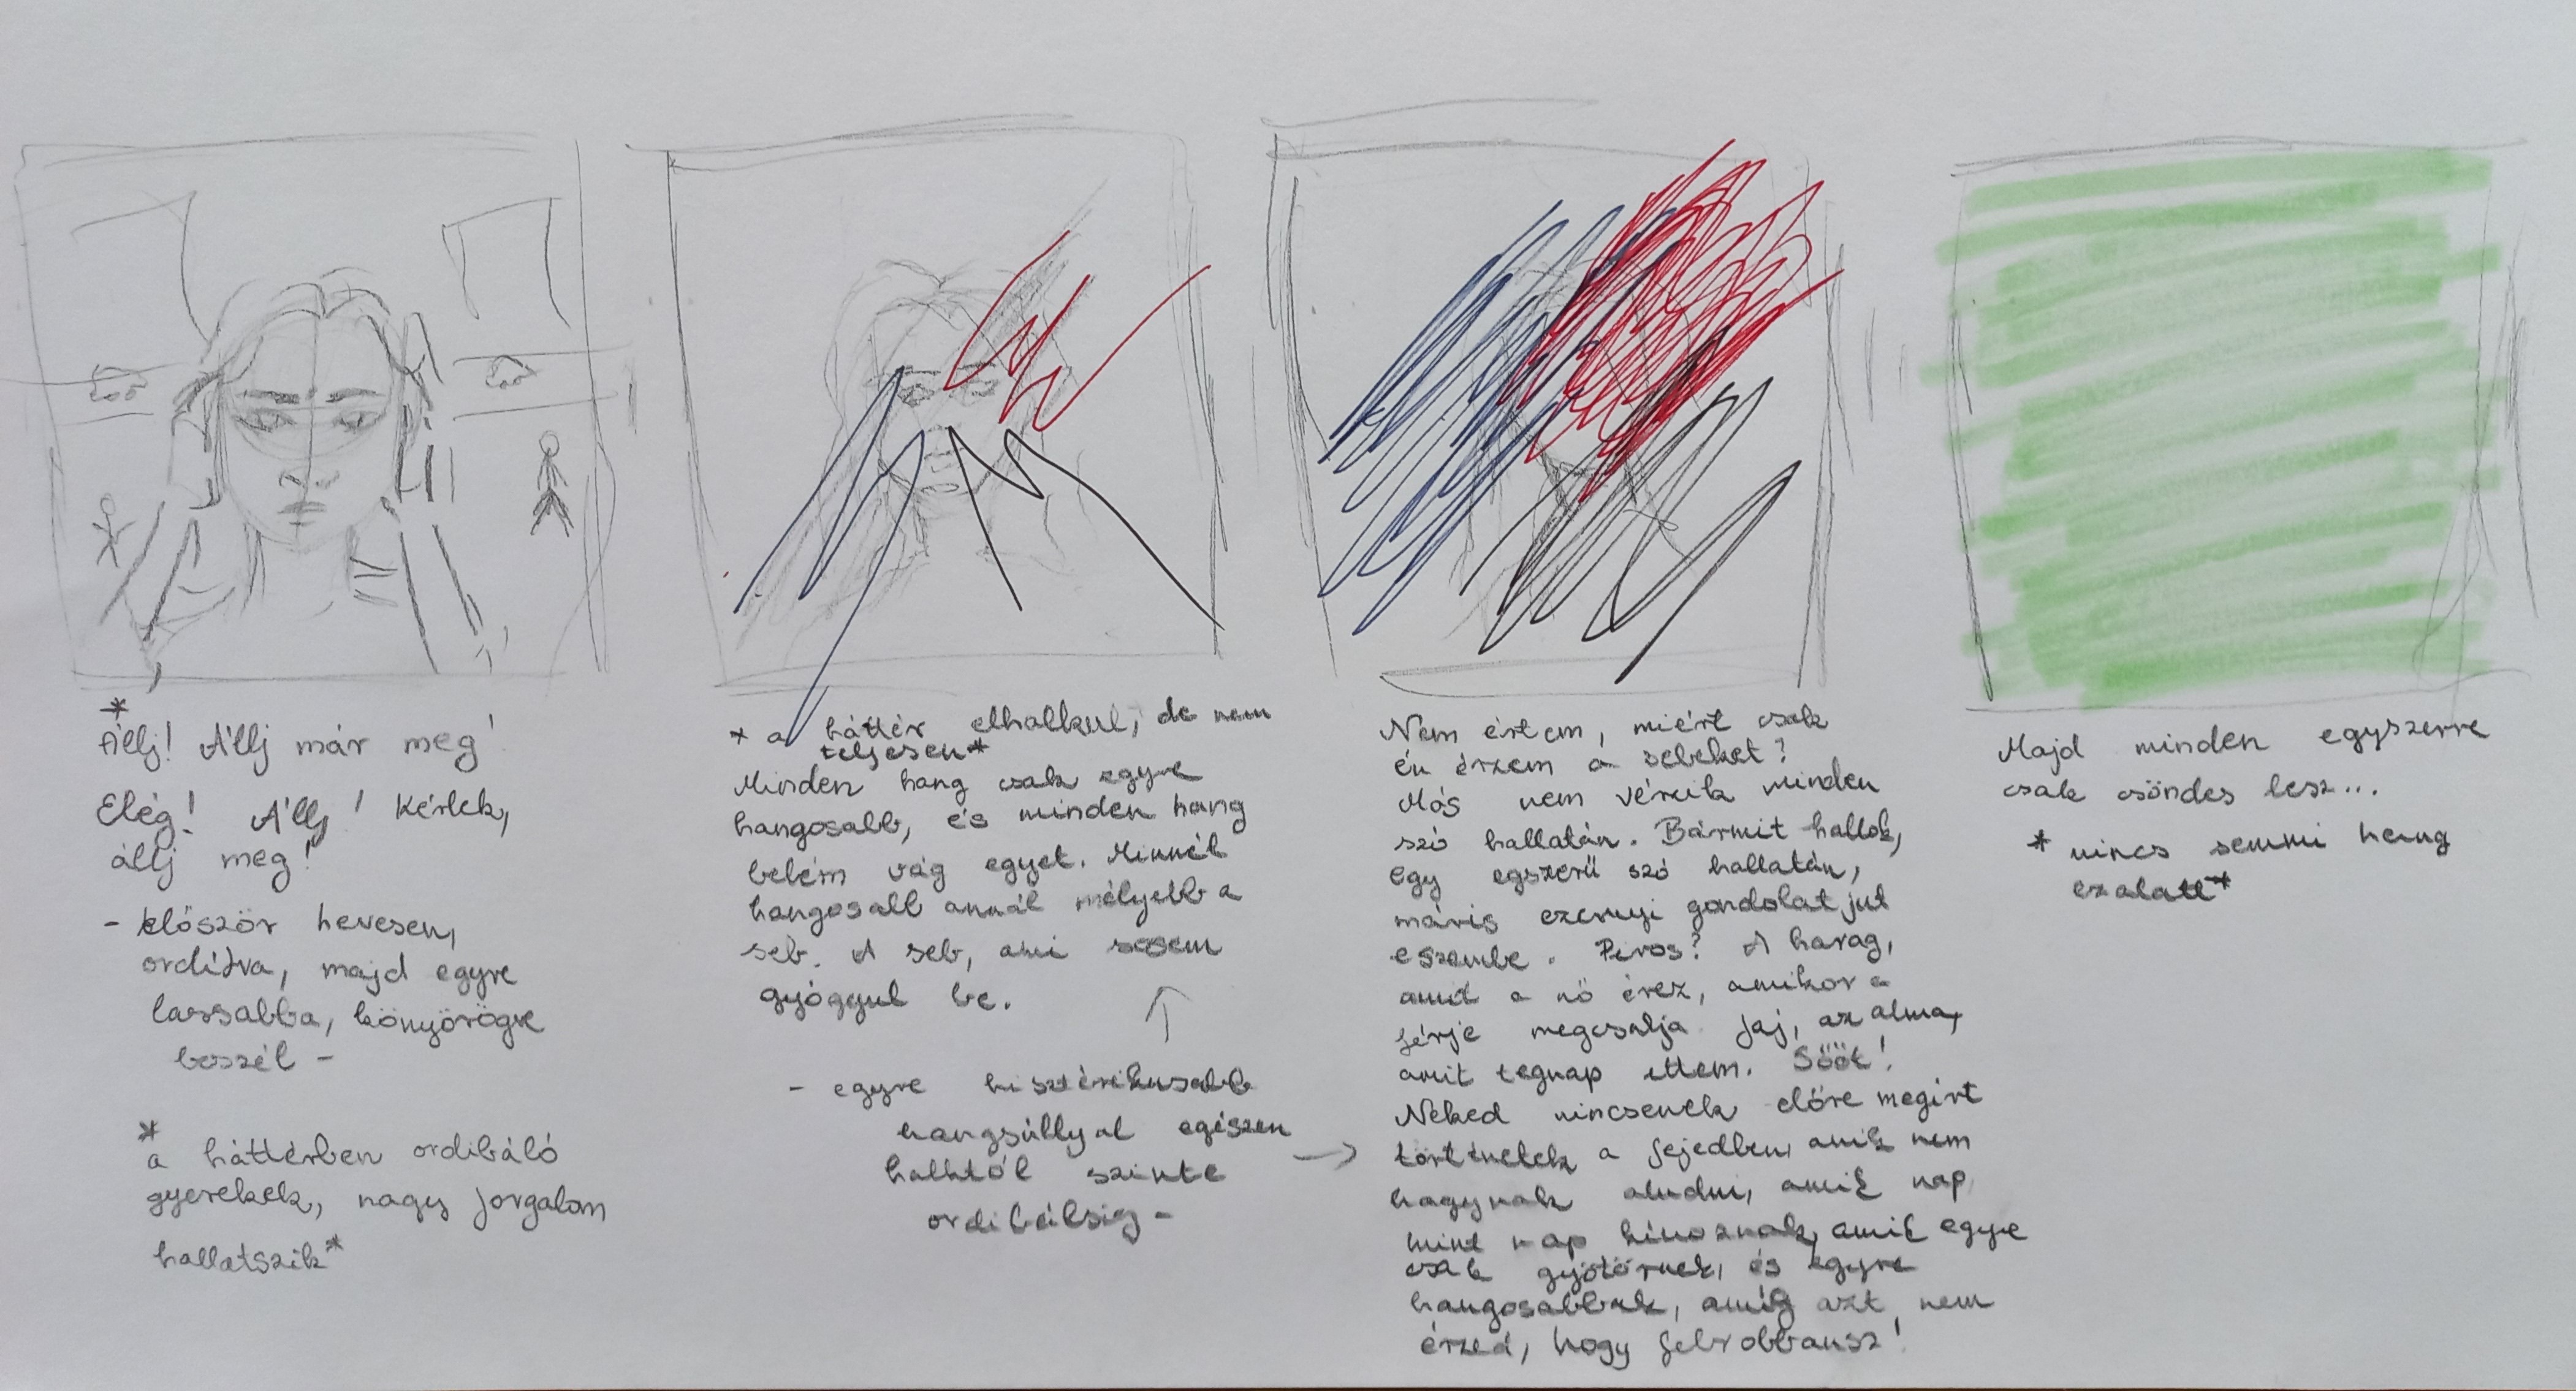 *
Állj! Állj már meg!
Elég! Állj! Kérlek,
állj meg!
- először hevesen,
ordítva, majd egyre
lassabba, könyörögve
beszél -
*
a háttérben ordibáló
gyerekek, nagy forgalom
hallatszik*
* a háttér elhalkul, de nem
teljesen*
Minden hang csak egyre
hangosabb, és minden hang
belém vág egyet. Minnél
hangosabb annál mélyebb a
seb. A seb, ami sosem
gyógyul be.
- egyre hisztérikusabb
hangsúllyal egészen
halktól szinte
ordibálsig -
Nem értem, miért csak
én érzem a sebeket?
Más nem vérzik minden
szó hallatán. Bármit hallok,
egy egszerű szó hallatán,
máris ezernyi gondolat jut
eszembe. Piros? A harag,
amit a nő érez, amikor a
férje megcsalja. Jaj, az alma,
amit tegnap ettem. Sőőt!
Neked nincsenek előre megírt
történetek a fejedben, amik nem
hagynak aludni, amik nap
mint nap kínoznak, amik egyre
csak gyötörnek, és egyre
hangosabbak, amíg azt nem
érzed, hogy felrobbansz!
Majd minden egyszerre
csak csöndes lesz...
* nincs semmi hang
ezalatt*